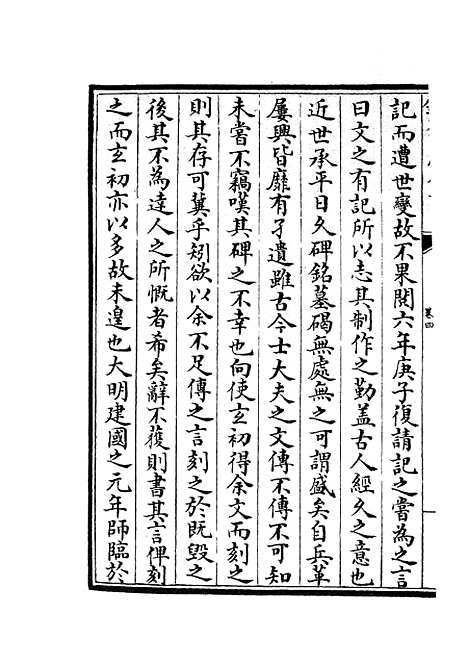 卷四
記而遭世變故不果閱六年庚子復請記之嘗為之言
曰文之有記所以志其制作之勤蓋古人經久之意也
近世承平日久碑銘墓碣無處無之可謂盛矣自兵革
屢興皆靡有孑遺雖古今士大夫之文傳不傳不可知
未嘗不竊嘆其碑之不幸也向使玄初得余文而刻之
則其存可冀乎矧欲以余不足傳之言刻之於既毀之
後其不為達人之所慨者希矣辭不獲則書其言俾刻
之而玄初亦以多故未遑也大明建國之元年師臨於